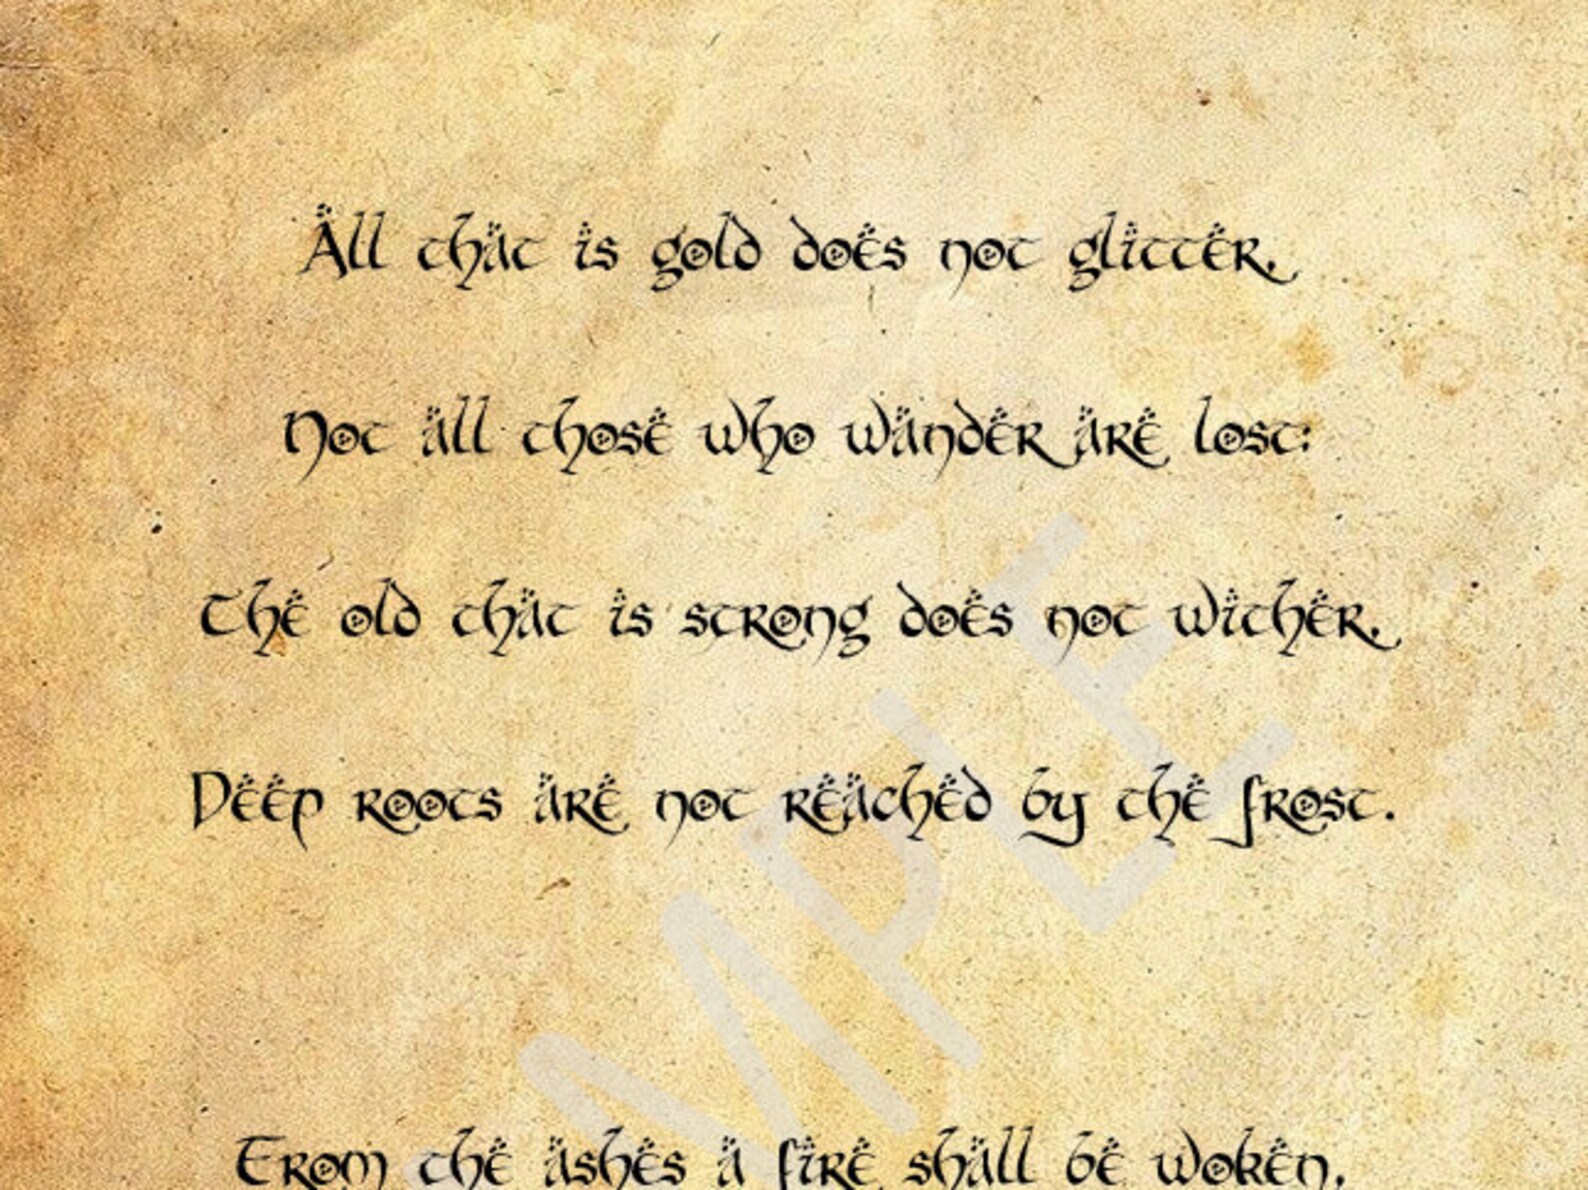 All that is gold does not glitter,
Not all those who wander are lost:
The old that is strong does not wither,
Deep roots are not reached by the frost.
From the ashes a fire shall be woken,
MPLE